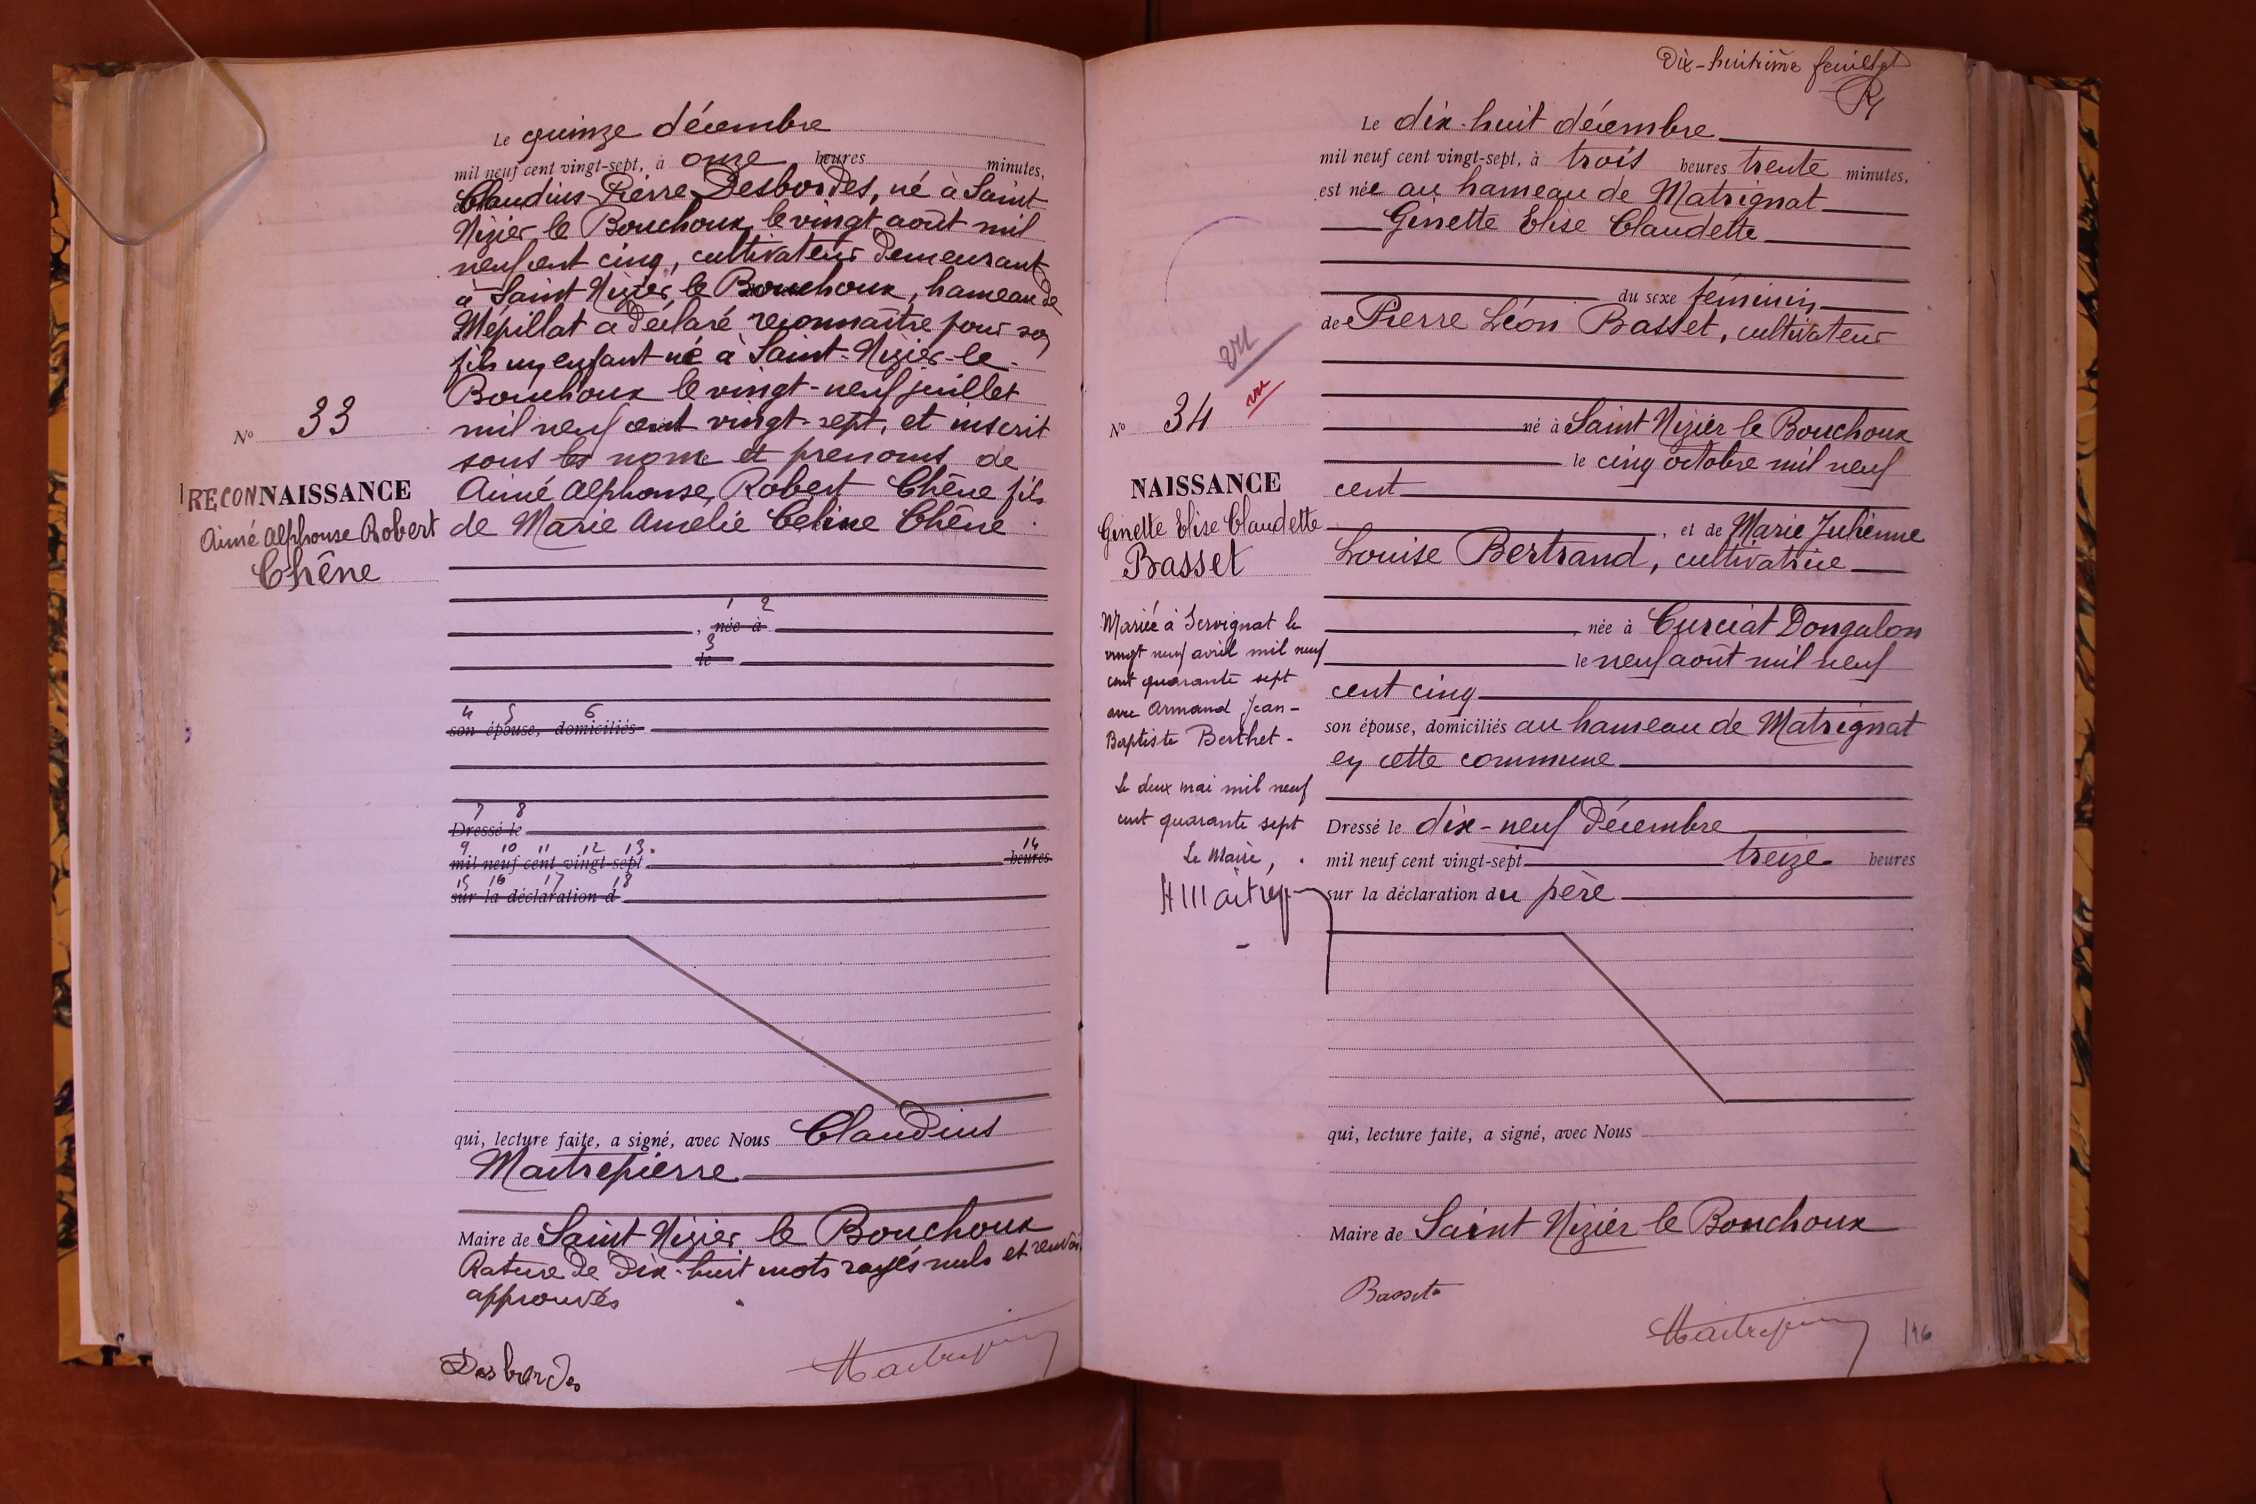 Le quinze décembre
mil neuf cent vingt-sept, à onze heures minutes,
Claudius Pierre Desbordes, né à Saint
Nizier le Bouchoux le vingt août mil
neuf cent cinq, cultivateur demeurant
à Saint Nizier le Bouchoux, hameau de
Mépillat a déclaré reconnaître pour son
fils un enfant né à Saint-Nizier-le-
Bouchoux le vingt-neuf juillet
mil neuf cent vingt-sept, et inscrit
sous les nom et prenoms de
Aimé Alphonse Robert Chêne fils
de Marie Amelie Celine Chêne
N° 33
RECONNAISSANCE
Aimé Alphonse Robert
Chêne
1 2
, née à
3
le
4 5 6
son épouse, domiciliés
7 8
Dressé le
9 10 11 12 13 14
mil neuf cent vingt-sept heures
15 16 17 18
sur la déclaration d
qui, lecture faite, a signé, avec Nous Claudius
Maitrepierre
Maire de Saint Nizier le Bouchoux
Rature de dix-huit mots rayés nuls et renvoi
approuvés
Desbordes
Maitrepierre
Dix-huitième feuillet
Le dix-huit décembre
mil neuf cent vingt-sept, à trois heures trente minutes,
est née au hameau de Matrignat
Ginette Elise Claudette
du sexe féminin
de Pierre Léon Basset, cultivateur
né à Saint Nizier le Bouchoux
le cinq octobre mil neuf
cent
, et de Marie Julienne
Louise Bertrand, cultivatrice
, née à Curciat Dongalon
le neuf août mil neuf
cent cinq
son épouse, domiciliés au hameau de Matrignat
en cette commune
Dressé le dix-neuf décembre
mil neuf cent vingt-sept treize heures
sur la déclaration du père
vu
vu
N° 34
NAISSANCE
Ginette Elise Claudette
Basset
Mariée à Servignat le
vingt neuf avril mil neuf
cent quarante sept
avec Armand Jean-
Baptiste Berthet-
Le deux mai mil neuf
cent quarante sept
Le Maire,
qui, lecture faite, a signé, avec Nous
Maire de Saint Nizier le Bouchoux
Basset
Maitrepierre